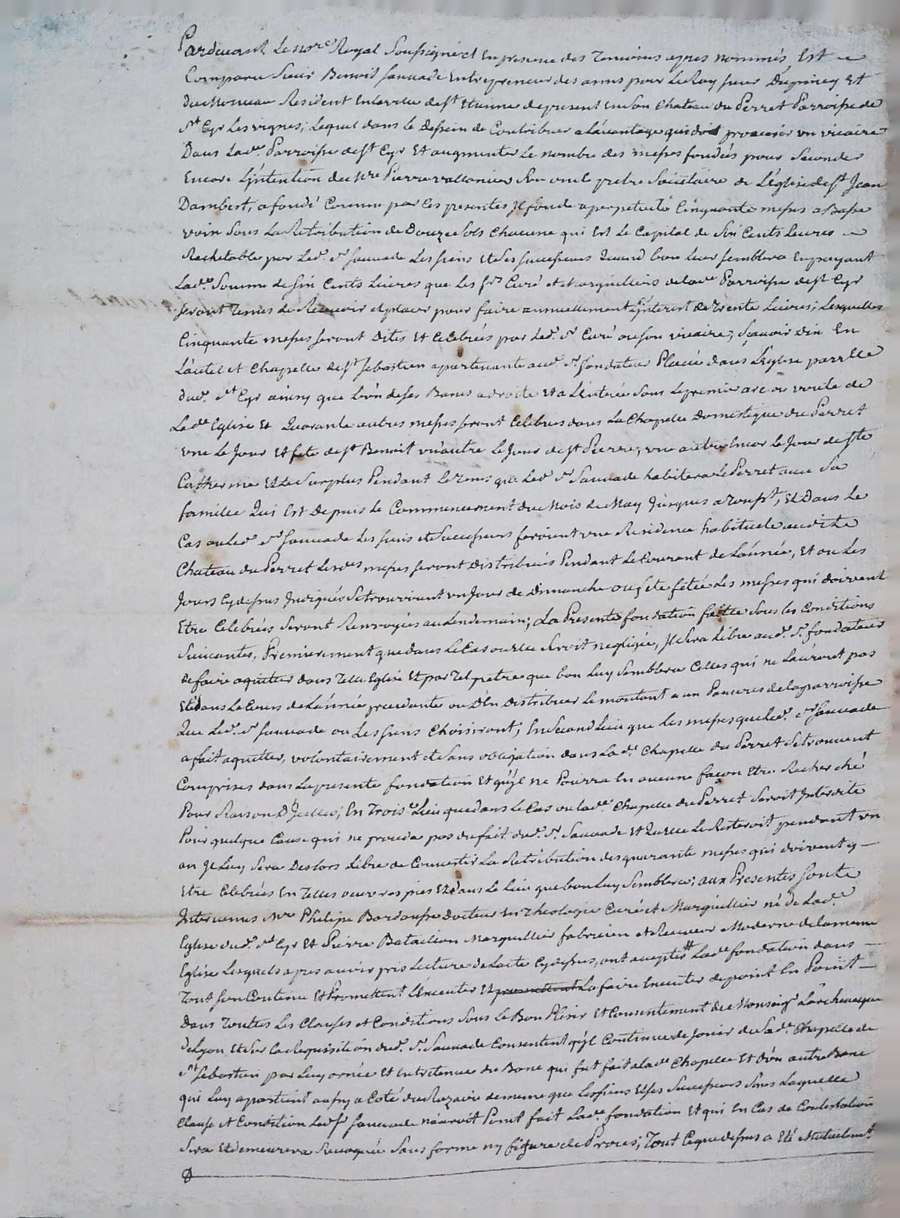 Pardevant Le no.re Royal Soussigné et En presence des Temoins apres nommés, Est
Comparu Sieur Benoit Sauvade Entrepreneur des armes pour Le Roy sieur Dupiney Et
du Monceau Resident En la ville de S.t Etienne de present En Son Chateau du Perret Parroisse de
S.t Cyr Les vignes, Lequel dans le Dessein de Contribuer a L'avantage qui doit procurer un vicaire
Dans Lad.e Parroisse de S.t Cyr Et augmenter Le nombre des messes fondés pour Seconder
Encore L'intention de m.re Pierre vallanier Son oncle pretre Societaire de L'Eglise de S.t Jean
Dambert, a fondé Comme par Ces presentes Jl fonde a perpetuité Cinquante messes a Basse
voix Sous La Retribution de Douze Sols Chacune qui Est Le Capital de Six Cents Livres
Rachetable par Led. S.r Sauvade Les siens Et Ses successeurs Quand bon Leur semblera En payant
Lad.e Somme de Six Cents Livres que Les S.rs Curé et Marguilliers de lad.e Parroisse de S.t Cyr
seront Tenus de Recevoir et placer pour faire annuellement Jnterest de Trente Livres; Lesquelles
Cinquante messes seront Dites Et Celebrés par Led. S.r Curé ou son vicaire; Sçavoir Dix En
L'autel et Chapelle de S.t Sebastien apartenante aud. S.r fondateur Placée dans L'Eglise parr.lle
dud. S.t Cyr ainsy que L'un de ses Bancs a droite Et a L'Entrée Sous Le premier arc ou voute de
Lad.e Eglise Et Quarante autres messes seront Celebrés dans La Chapelle Domestique du Perret
une Le Jour Et fete de S.t Benoit un'autre Le Jour de S.t Pierre, une autre Encor Le Jour de S.te
Catherine Et Le Surplus Pendant Le Tems que Led. S.r Sauvade habitera Le Perret avec Sa
famille Qui Est Depuis Le Commencement du Mois de May Jusques a Touss.t, Et Dans Le
Cas ou Led. S.r Sauvade Les siens et Successeurs feroient une Residence habituelle audit
Chateau du Perret Lesd.es messes seront Distribués Pendant Le Courant de L'année, Et ou Les
Jours Cy dessus Jndiqués Se trouveroient un Jour de Dimanche ou fete fetée Les messes qui doivent
Etre Celebrés Seront Renvoyées au Lendemain; La Presente fondation faitte Sous les Conditions
Suivantes, Premierement que dans Le Cas ou Elle Seroit negligée, Jl Sera Libre aud. S.r fondateur
de faire aquitter dans Telle Eglise Et par Tel pretre que bon Luy Semblera Celles qui ne L'auront pas
Eté dans Le Cours de L'année precedente ou D'En Distribuer Le montant a un Pauvres de la parroisse
Que Led. S.r Sauvade ou Les siens Choisiront; En Second Lieu que Les messes que Led. S.r Sauvade
a fait aquitter, volontairement et sans obligation dans Lad.e Chapelle du Perret Se trouvent
Comprises dans La presente fondation Et qu'Jl ne Pourra En aucune façon Etre Recherché
Pour Raison D'Jcelles; En Trois.e Lieu que dans Le Cas ou Lad.e Chapelle du Perret Seroit Jnterdite
Pour quelque Cause qui ne proceda pas du fait dud. S.r Sauvade Et Qu'elle Le Resteroit pendant un
an Jl Luy Sera Des lors Libre de Convertir La Retribution des quarante messes qui doivent y
Etre Celebrés En Telles oeuvres pies Et dans Le Lieu que bon Luy Semblera; aux Presentes sont
Jntervenus M.re Philipe Bordousse Docteur En Theologie Curé et Marguillier né de Lad.e
Eglise dud. S.t Cyr Et Pierre Bataillion Marguillier fabricien et Receveur Moderne de la meme
Eglise Lesquels apres avoir pris Lecture de L'acte Cy dessus, ont accepté Lad.e fondation dans
Tout Son Contenu Et Promettent L'Executer Et promettent La faire Executer de point En Point
Dans Toutes Les Clauses et Conditions Sous Le Bon Plaisir Et Consentement de Monseig.r L'archeveque
de Lyon, Et Sur La Requisition dud. S.r Sauvade Consentent qu'Jl Continue de Jouir de Sad.e Chapelle de
S.t Sebastien par Luy ornée Et Entretenue du Banc qui fut fait a lad.e Chapelle Et d'un autre Banc
qui Luy apartient aussy a Coté du de meme que Les siens Et Ses Successeurs Sans Laquelle
Clause et Condition Led. S.r Sauvade n'auroit Point fait Lad.e fondation Et qui En Cas de Contestation
Sera Et demeurera Revoquée Sans forme ny figure de Procès; Tout Ce que dessus a Eté